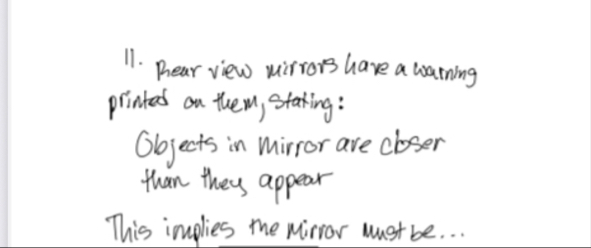 11. Rear view mirrors have a warning
printed on them, stating:
Objects in mirror are closer
than they appear
This implies the mirror must be...